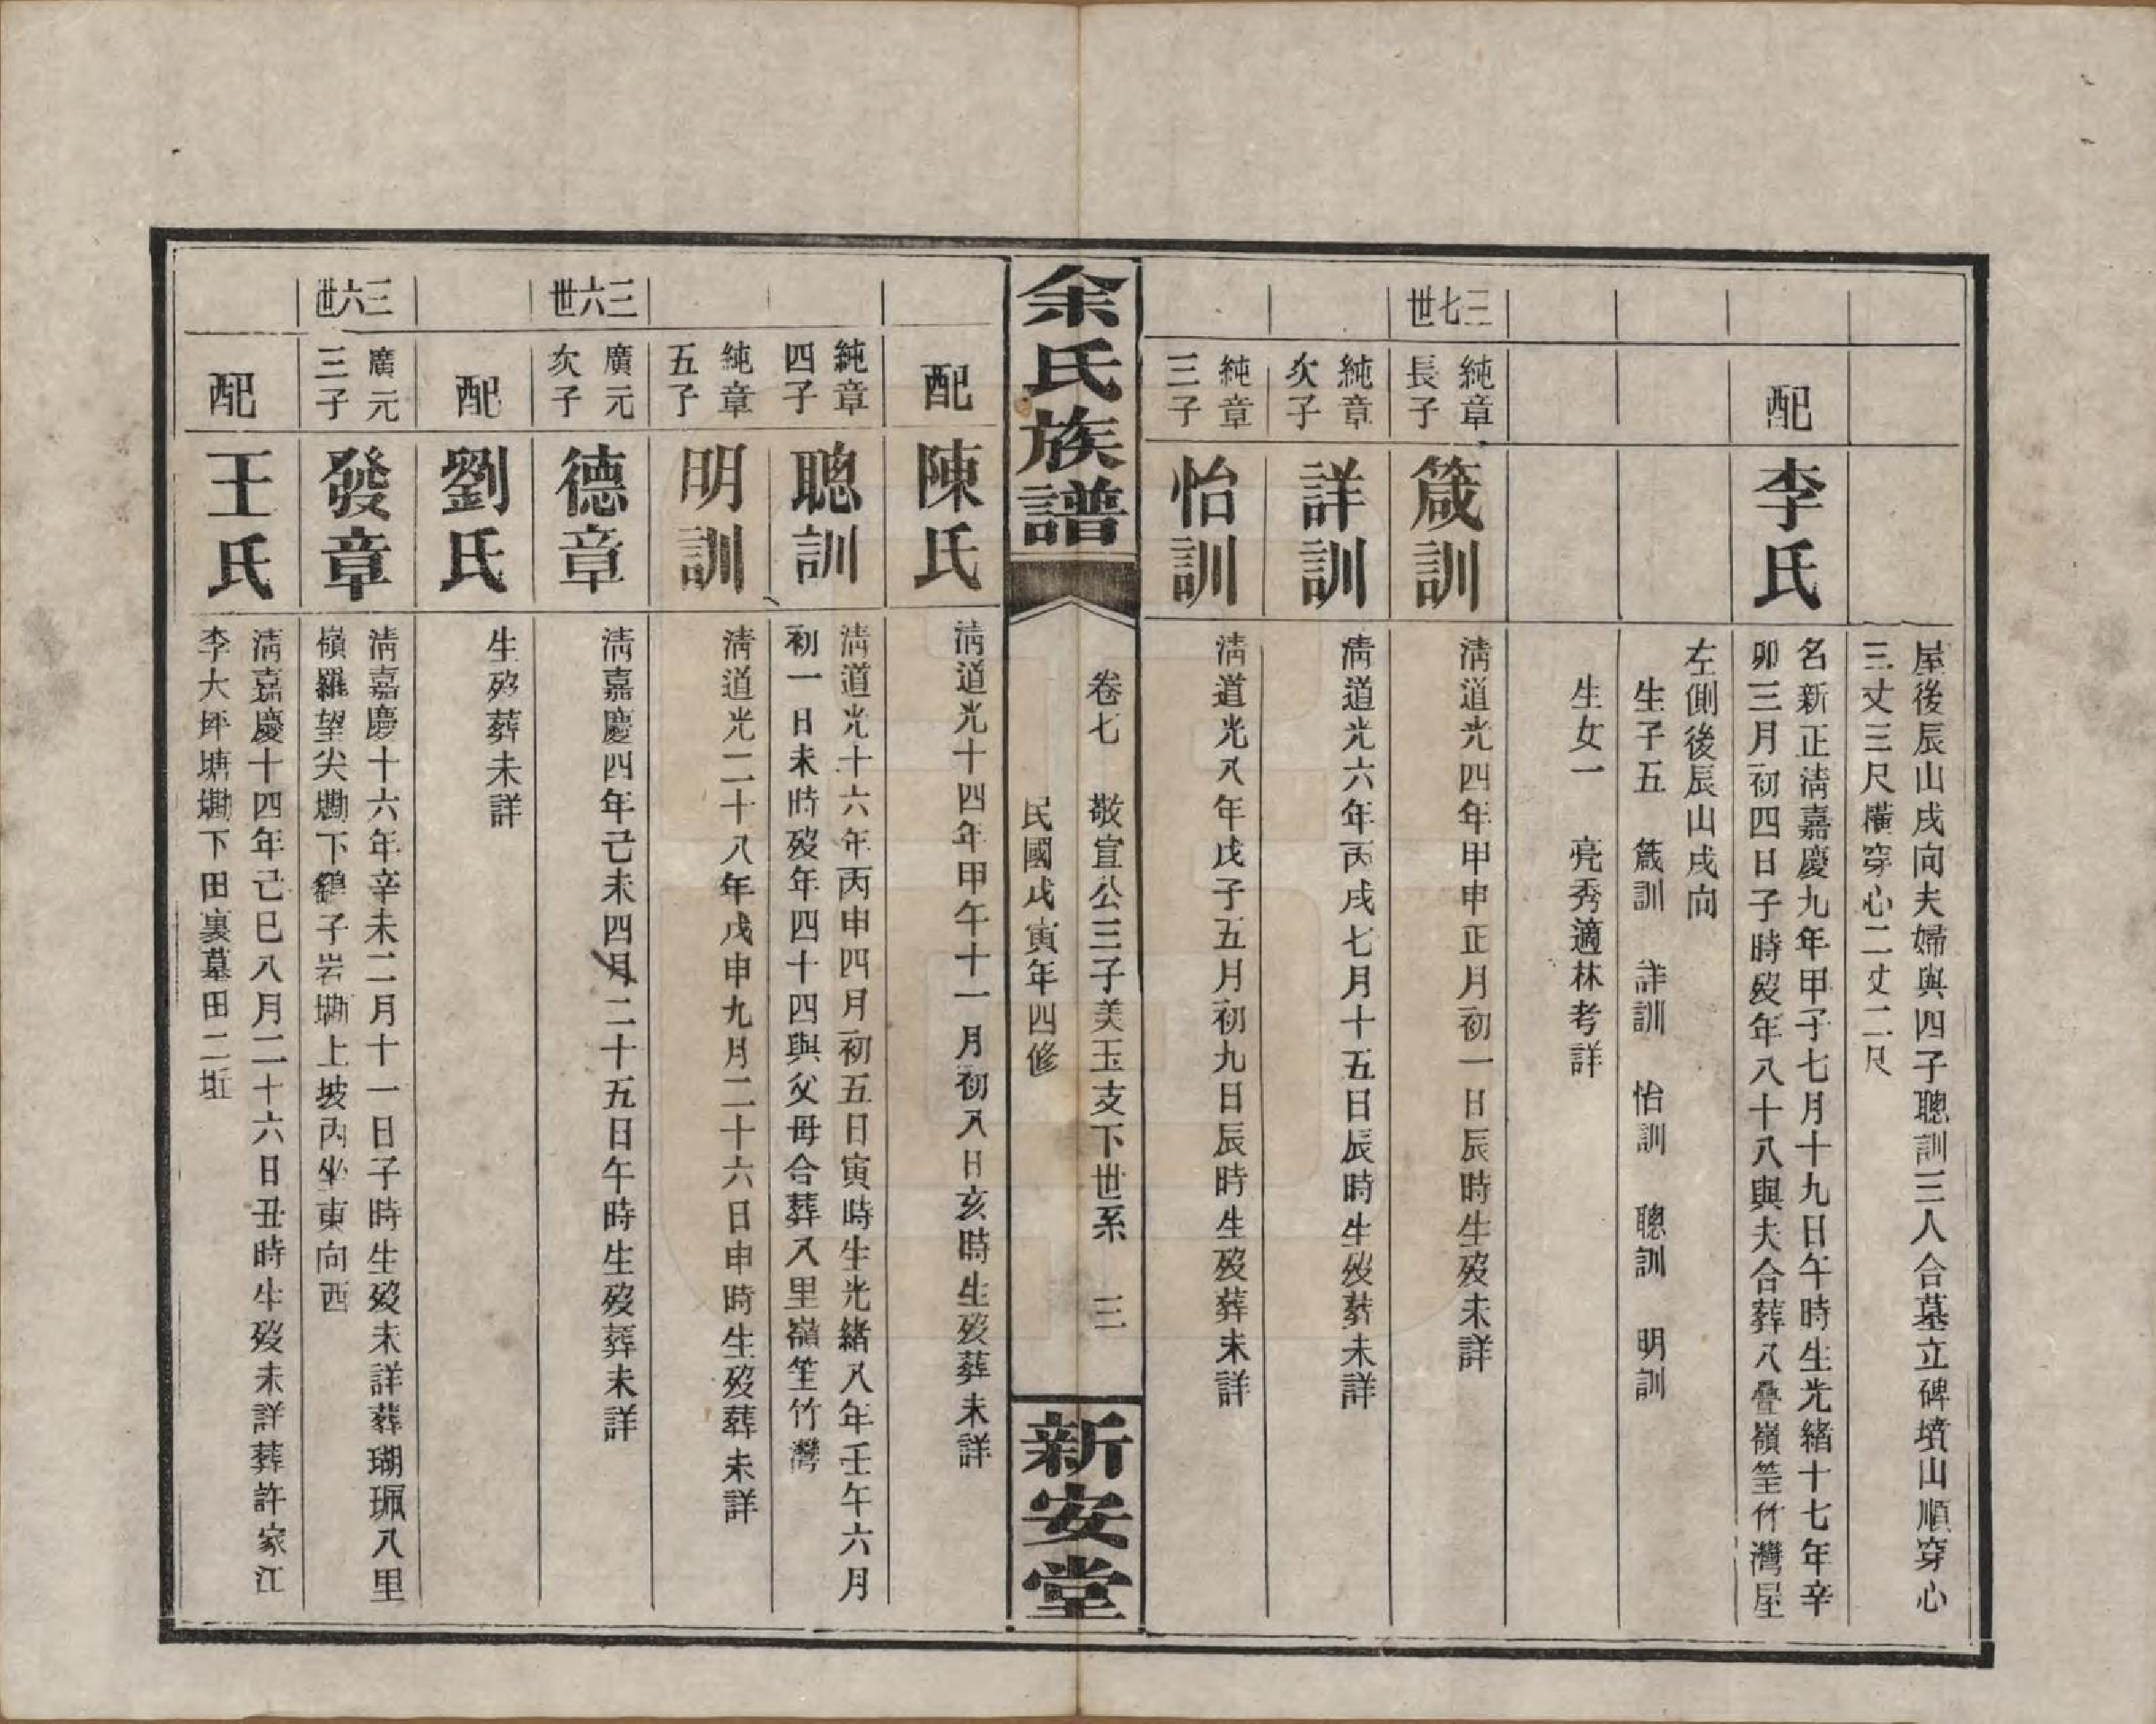 屋後辰山戌向夫婦與四子聰訓三人合墓立碑墳山順穿心
三丈三尺橫穿心二丈二尺
配
李氏
名新正淸嘉慶九年甲子七月十九日午時生光緒十七年辛
卯三月初四日子時歿年八十八與夫合葬八疊嶺筀竹灣屋
左側後辰山戌向
生子五 箴訓 詳訓 怡訓 聰訓 明訓
生女一 亮秀適林考詳
三七世
純章
長子
箴訓
淸道光四年甲申正月初一日辰時生歿未詳
純章
次子
詳訓
淸道光六年丙戌七月十五日辰時生歿葬未詳
純章
三子
怡訓
淸道光八年戊子五月初九日辰時生歿葬未詳
余氏族譜
卷七 敬宣公三子美玉支下世系 三
民國戊寅年四修
新安堂
配
陳氏
淸道光十四年甲午十一月初八日亥時生歿葬未詳
純章
四子
聰訓
淸道光十六年丙申四月初五日寅時生光緒八年壬午六月
初一日未時歿年四十四與父母合葬八里嶺筀竹灣
純章
五子
明訓
淸道光二十八年戊申九月二十六日申時生歿葬未詳
三六世
廣元
次子
德章
淸嘉慶四年己未四月二十五日午時生歿葬未詳
配
劉氏
生歿葬未詳
三六世
廣元
三子
發章
淸嘉慶十六年辛未二月十一日子時生歿未詳葬瑚珮八里
嶺羅望尖墈下鶴子岩墈上坡丙坐東向西
配
王氏
淸嘉慶十四年己巳八月二十六日丑時生歿未詳葬許家江
李大坪塘墈下田裏墓田二坵